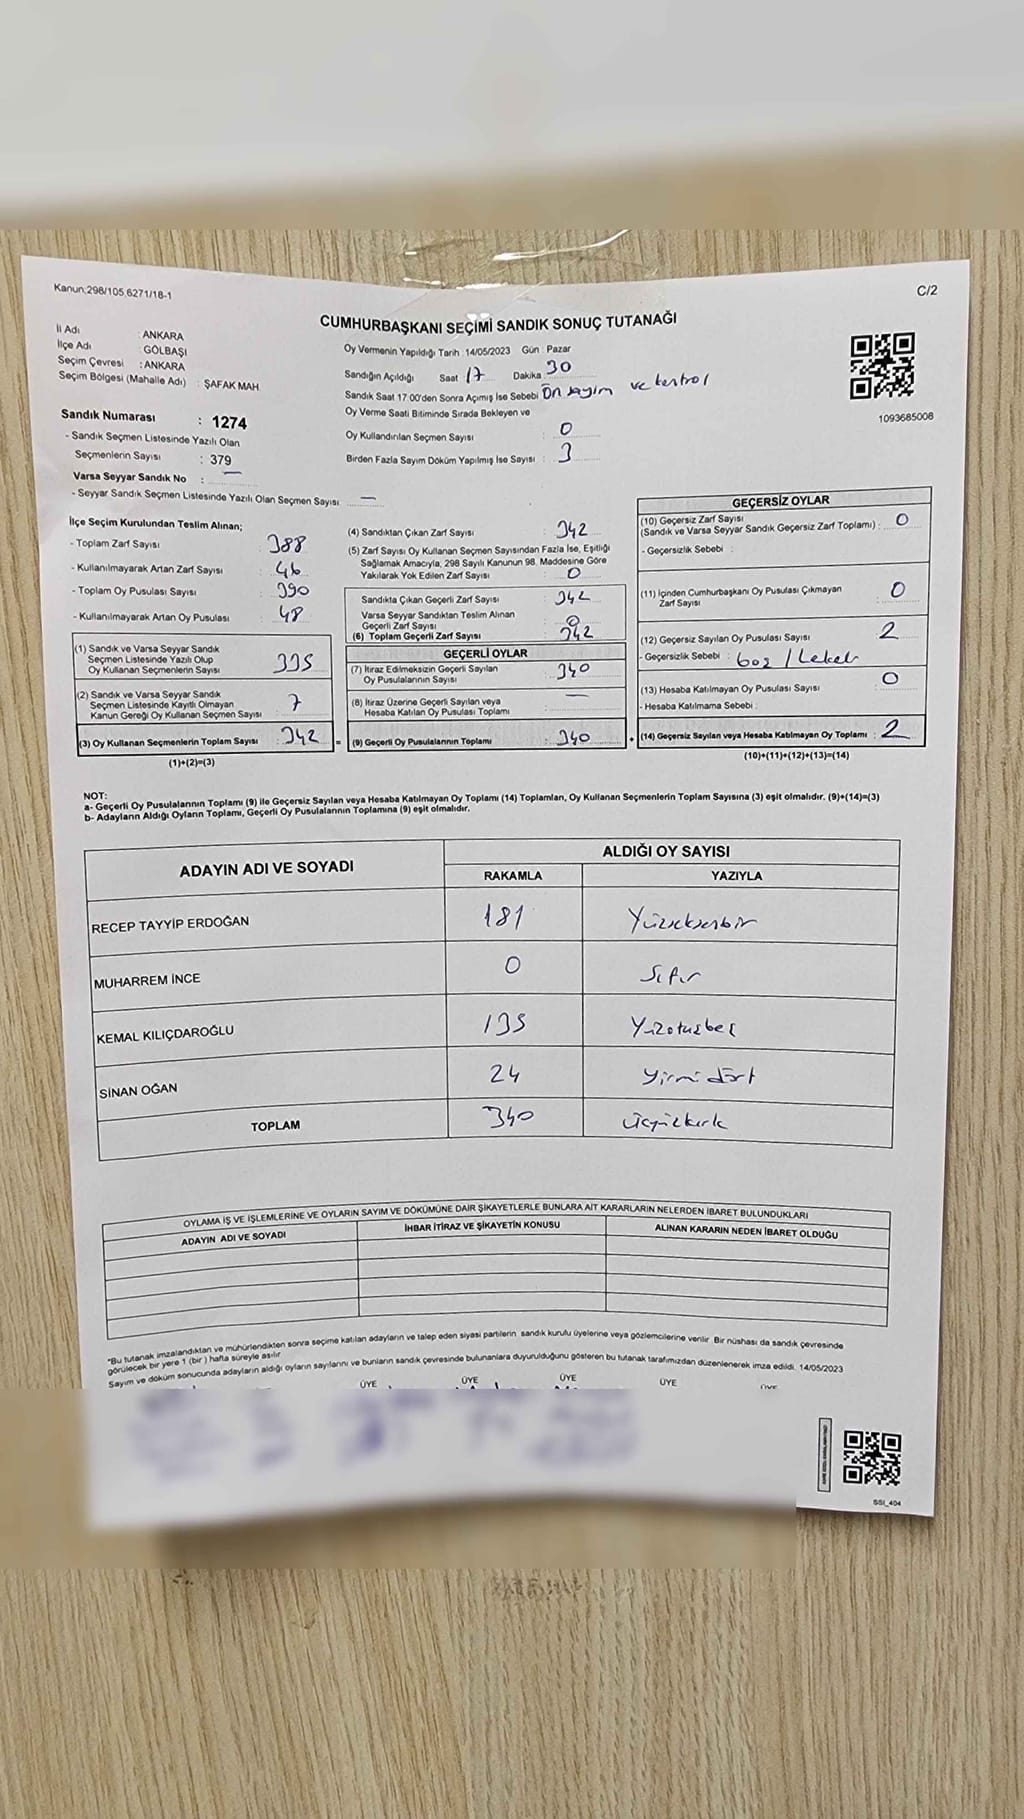 Kanun,298/105,6271/18-1
C/2
CUMHURBAŞKANI SEÇİMİ SANDIK SONUÇ TUTANAĞI
İl Adı : ANKARA
İlçe Adı : GÖLBAŞI
Seçim Çevresi : ANKARA
Seçim Bölgesi (Mahalle Adı) : ŞAFAK MAH.
Oy Vermenin Yapıldığı Tarih : 14/05/2023 Gün : Pazar
Sandığın Açıldığı Saat 17 Dakika 30
Sandık Saat 17:00'den Sonra Açımış İse Sebebi Ön sayım ve kontrol
Oy Verme Saati Bitiminde Sırada Bekleyen ve
Oy Kullandırılan Seçmen Sayısı : 0
Birden Fazla Sayım Döküm Yapılmış İse Sayısı : 3
1093685008
Sandık Numarası : 1274
- Sandık Seçmen Listesinde Yazılı Olan
Seçmenlerin Sayısı : 379
Varsa Seyyar Sandık No : —
- Seyyar Sandık Seçmen Listesinde Yazılı Olan Seçmen Sayısı : —
İlçe Seçim Kurulundan Teslim Alınan;
- Toplam Zarf Sayısı : 388
- Kullanılmayarak Artan Zarf Sayısı : 46
- Toplam Oy Pusulası Sayısı : 390
- Kullanılmayarak Artan Oy Pusulası : 48
(1) Sandık ve Varsa Seyyar Sandık
Seçmen Listesinde Yazılı Olup
Oy Kullanan Seçmenlerin Sayısı : 335
(2) Sandık ve Varsa Seyyar Sandık
Seçmen Listesinde Kayıtlı Olmayan
Kanun Gereği Oy Kullanan Seçmen Sayısı : 7
(3) Oy Kullanan Seçmenlerin Toplam Sayısı : 342 =
(1)+(2)=(3)
(4) Sandıktan Çıkan Zarf Sayısı : 342
(5) Zarf Sayısı Oy Kullanan Seçmen Sayısından Fazla İse, Eşitliği
Sağlamak Amacıyla, 298 Sayılı Kanunun 98. Maddesine Göre
Yakılarak Yok Edilen Zarf Sayısı : 0
Sandıkta Çıkan Geçerli Zarf Sayısı : 342
Varsa Seyyar Sandıktan Teslim Alınan
Geçerli Zarf Sayısı : 0
(6) Toplam Geçerli Zarf Sayısı : 342
GEÇERLİ OYLAR
(7) İtiraz Edilmeksizin Geçerli Sayılan
Oy Pusulalarının Sayısı : 340
(8) İtiraz Üzerine Geçerli Sayılan veya
Hesaba Katılan Oy Pusulası Toplamı : —
(9) Geçerli Oy Pusulalarının Toplamı : 340 +
GEÇERSİZ OYLAR
(10) Geçersiz Zarf Sayısı
(Sandık ve Varsa Seyyar Sandık Geçersiz Zarf Toplamı) : 0
- Geçersizlik Sebebi :
(11) İçinden Cumhurbaşkanı Oy Pusulası Çıkmayan
Zarf Sayısı : 0
(12) Geçersiz Sayılan Oy Pusulası Sayısı : 2
- Geçersizlik Sebebi : boş / Lekeli
(13) Hesaba Katılmayan Oy Pusulası Sayısı : 0
- Hesaba Katılmama Sebebi :
(14) Geçersiz Sayılan veya Hesaba Katılmayan Oy Toplamı : 2
(10)+(11)+(12)+(13)=(14)
NOT:
a- Geçerli Oy Pusulalarının Toplamı (9) ile Geçersiz Sayılan veya Hesaba Katılmayan Oy Toplamı (14) Toplamları, Oy Kullanan Seçmenlerin Toplam Sayısına (3) eşit olmalıdır. (9)+(14)=(3)
b- Adayların Aldığı Oyların Toplamı, Geçerli Oy Pusulalarının Toplamına (9) eşit olmalıdır.
ADAYIN ADI VE SOYADI
ALDIĞI OY SAYISI
RAKAMLA YAZIYLA
RECEP TAYYİP ERDOĞAN 181 Yüzseksenbir
MUHARREM İNCE 0 Sıfır
KEMAL KILIÇDAROĞLU 135 Yüzotuzbeş
SİNAN OĞAN 24 Yirmi dört
TOPLAM 340 üçyüzkırk
OYLAMA İŞ VE İŞLEMLERİNE VE OYLARIN SAYIM VE DÖKÜMÜNE DAİR ŞİKAYETLERLE BUNLARA AİT KARARLARIN NELERDEN İBARET BULUNDUKLARI
ADAYIN ADI VE SOYADI İHBAR İTİRAZ VE ŞİKAYETİN KONUSU ALINAN KARARIN NEDEN İBARET OLDUĞU
"Bu tutanak imzalandıktan ve mühürlendikten sonra seçime katılan adayların ve talep eden siyasi partilerin sandık kurulu üyelerine veya gözlemcilerine verilir. Bir nüshası da sandık çevresinde
görülecek bir yere 1 (bir) hafta süreyle asılır
Sayım ve döküm sonucunda adayların aldığı oyların sayılarını ve bunların sandık çevresinde bulunanlara duyurulduğunu gösteren bu tutanak tarafımızdan düzenlenerek imza edildi. 14/05/2023
ÜYE ÜYE ÜYE ÜYE ÜYE
SSI_404